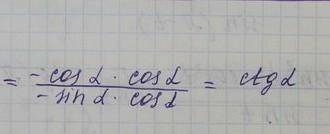 = -cos α · cos α / -sin α · cos α = ctg α